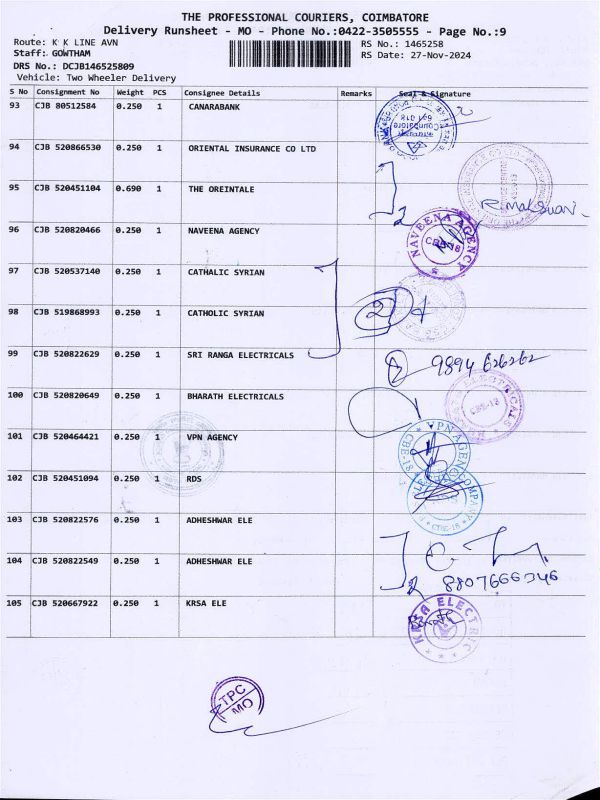 THE PROFESSIONAL COURIERS, COIMBATORE
Delivery Runsheet - MO - Phone No.:0422-3505555 - Page No.:9
Route: K K LINE AVN
RS No.: 1465258
Staff: GOWTHAM
RS Date: 27-Nov-2024
DRS No.: DCJB146525809
Vehicle: Two Wheeler Delivery
S No Consignment No Weight PCS Consignee Details Remarks Seal & Signature
93 CJB 80512584 0.250 1 CANARABANK
Coimbatore
641 018
94 CJB 520866530 0.250 1 ORIENTAL INSURANCE CO LTD
95 CJB 520451104 0.690 1 THE OREINTALE
2
96 CJB 520820466 0.250 1 NAVEENA AGENCY
NAVEENA AGENCY
CBE-18
97 CJB 520537140 0.250 1 CATHALIC SYRIAN
98 CJB 519868993 0.250 1 CATHOLIC SYRIAN
2
99 CJB 520822629 0.250 1 SRI RANGA ELECTRICALS
9894 626262
100 CJB 520820649 0.250 1 BHARATH ELECTRICALS
ELECTRICALS
CBE-18
101 CJB 520464421 0.250 1 VPN AGENCY
VPN AGENCY
CBE-18
102 CJB 520451094 0.250 1 RDS
COMPANY
CBE-18
103 CJB 520822576 0.250 1 ADHESHWAR ELE
104 CJB 520822549 0.250 1 ADHESHWAR ELE
2
8807666346
105 CJB 520667922 0.250 1 KRSA ELE
KRSA ELECTRIC
TPC
MO